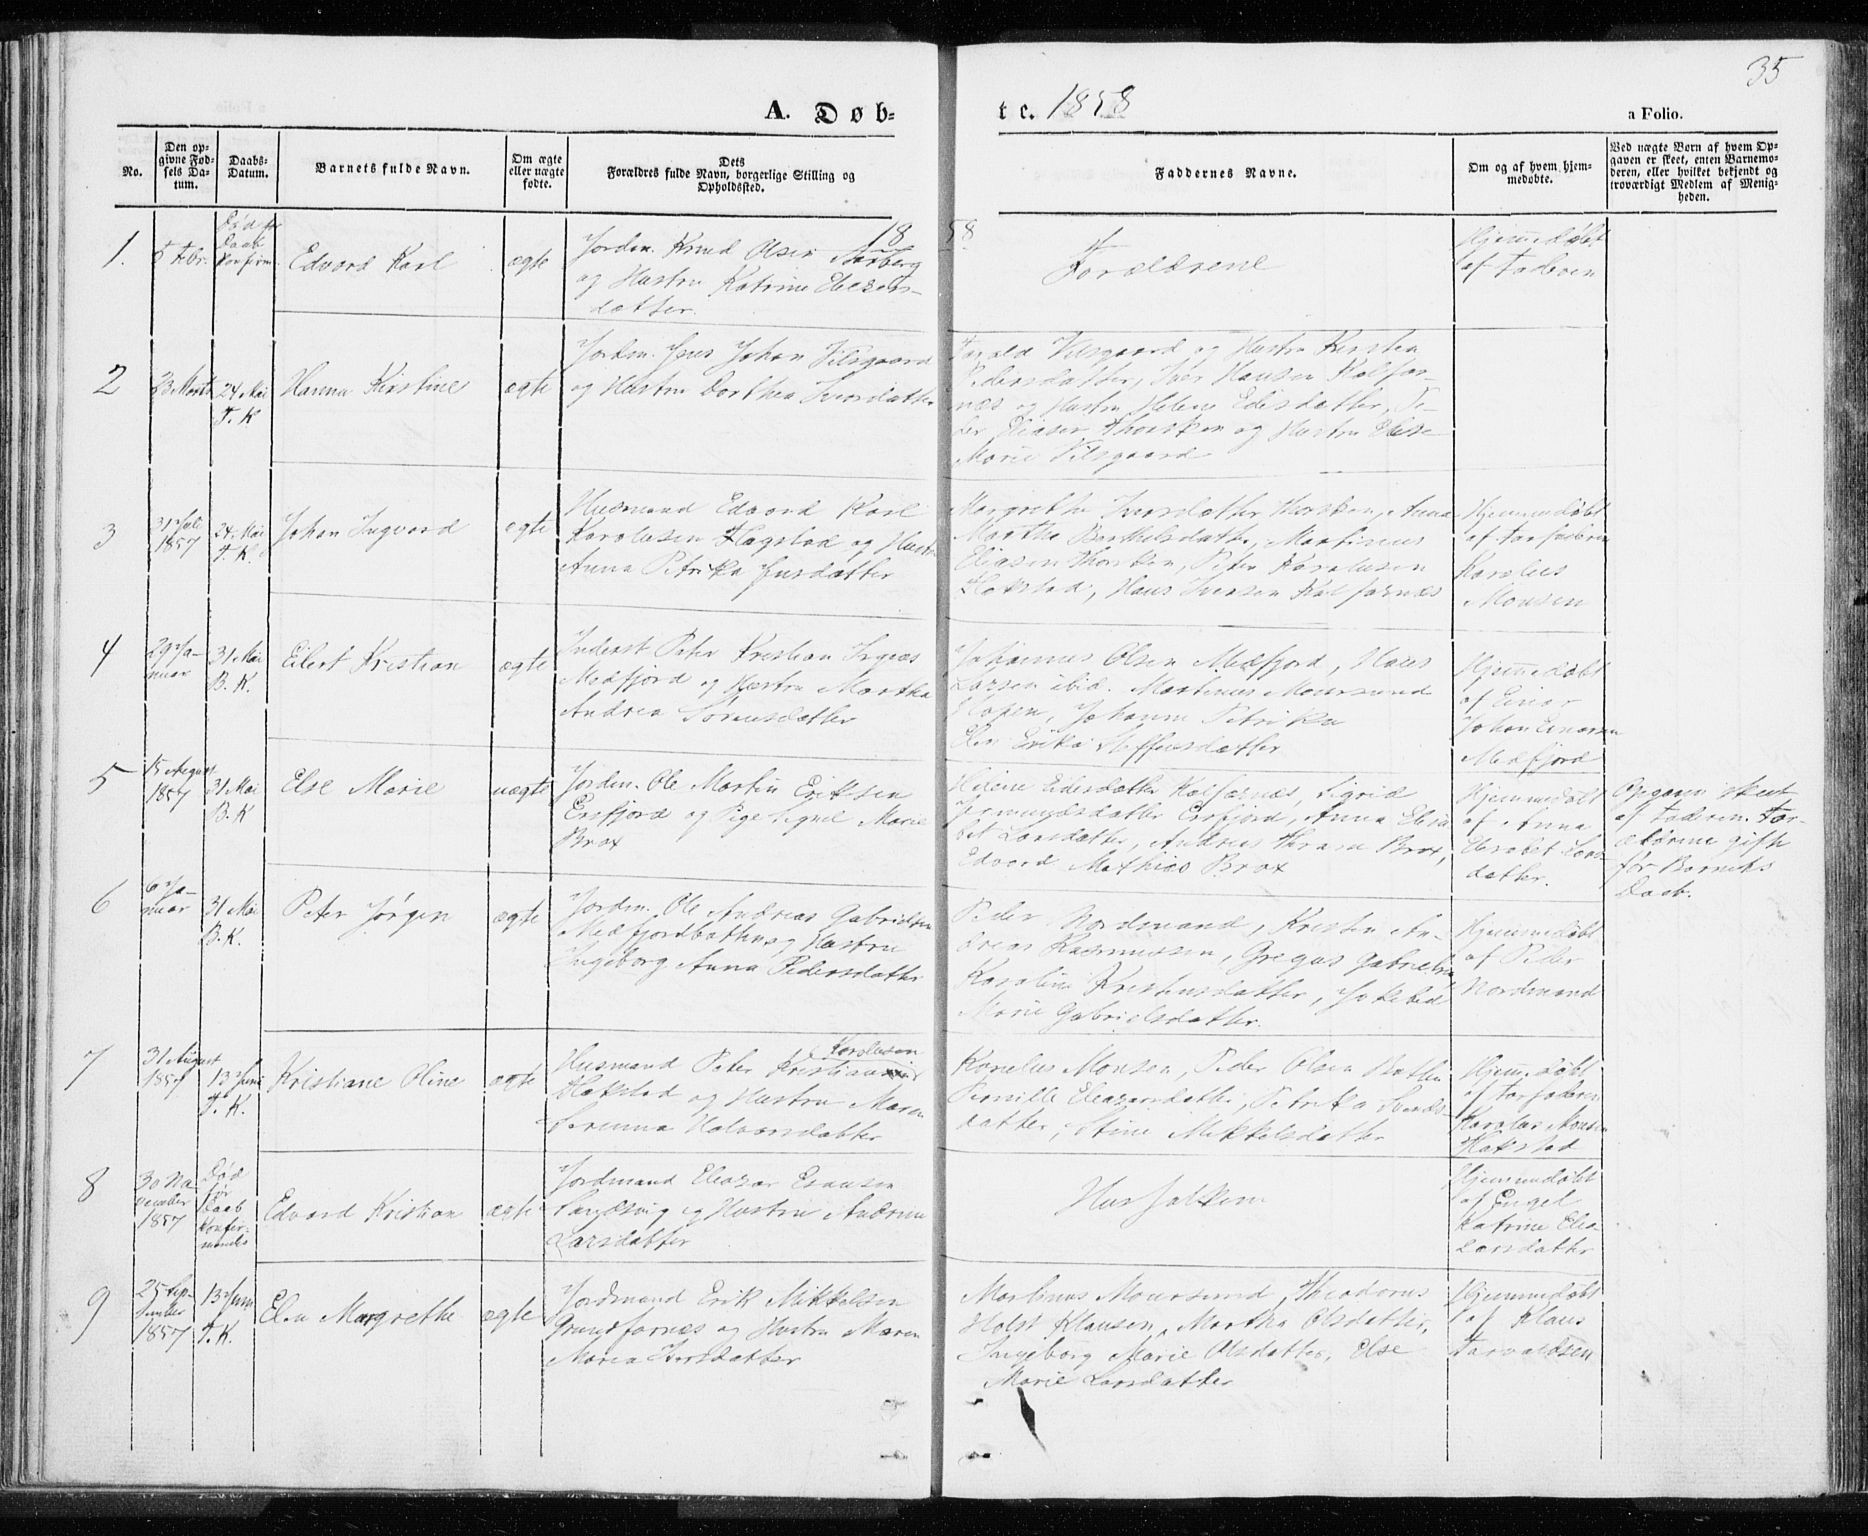 35
A. Døb-
te. 1858
a Folio.
No.
Den op-
givne Fød-
sels Da-
tum.
Daabs-
Datum.
Barnets fulde Navn.
Om ægte
eller uægte
fødte.
Dets
Forældres fulde Navn, borgerlige Stilling og
Opholdssted.
Faddernes Navne.
Om og af hvem hjem-
medøbte.
Ved uægte Børn af hvem Op-
gaven er skeet, enten Barnemo-
deren, eller hvilket bekjendt og
troværdigt Medlem af Menig-
heden.
1858
1.
Død før
Daab
Konfirm.
Edvard Karl
ægte
Jordm. Knud Olsen
og Hustru Katrine Eleazers-
datter.
Forældrene
Hjemmedøbt
af Faderen
2
23 Marts
24 Mai
T. K
Hanna Kirstine
ægte
Jordm. Jens Johan Vilsgaard
og Hustru Dorthea Iversdatter
Vilsgaard og Hustru Kirsten
Pedersdatter, Iver Hansen Kalfar-
næs og Hustru Helene Edisdatter, Pe-
der Eliasen Thorsken og Hustru Else
Marie Vilsgaard
3
31 Juli
1857
24 Mai
T. K.
Johan Ingvard
ægte
Husmand Edvard Karl
Karolusen Hagstad og Hustru
Anna Petrika Jensdatter
Margrethe Iversdatter Thorsken, Anna
Martha Barthelsdatter, Martinus
Eliasen Thorsken, Peter Karolusen
Hakstad, Hans Iversen Kalfarnæs
Hjemmedøbt
af Farfaderen
Karolus
Monsen
4
29 Ja-
nuar
31 Mai
B. K.
Eilert Kristian
ægte
Inderst Peter Kristian
Medfjord og Hustru Martha
Andrea Sørensdatter
Johannes Olsen Medfjord, Hans
Larsen ibid. Martinus Moursund
Hopen, Johanna Petrika
Elen Erika Steffensdatter
Hjemmedøbt
af Einar
Johan Einarsen
Medfjord
5
15 August
1857
31 Mai
B. K
Else Marie
uægte
Jordm. Ole Martin Eriksen
Ersfjord og Pige Signil Marie
Brox
Helene Edisdatter Kalfarnæs, Sigrid
Ersfjord, Anna Elisa-
bet Larsdatter, Andreas Brox,
Edvard Mathias Brox
Hjemmedøbt
af Anna
Elisabet Lars-
datter.
Opgaven skeet
af Faderen. For-
ældrene gift
før Barnets
Daab.
6
6 Ja-
nuar
31 Mai
B. K.
Peter Jørgen
ægte
Jordm. Ole Andreas Gabrielsen
Medfjordbotten og Hustru
Ingeborg Anna Pedersdatter
Peder Nordmand, Kristen An-
dreas Rasmussen, Gregus Gabrielsen
Karoline Kristensdatter, Jokebed
Marie Gabrielsdatter.
Hjemmedøbt
af Peder
Nordmand
7
31 August
1857
13 Juni
T. K.
Kristiane Oline
ægte
Karolusen
Husmand Peter Kristian
Hakstad og Hustru Maren
Halvorsdatter
Karolus Monsen, Peder Olsen
Pernille Eleazersdatter, Petrika
datter, Stine Mikkelsdatter
Hjemmedøbt
af Farfaderen
Karolus Monsen
Hakstad
8
30 No-
vember
1857
Død
før
Daab
Konfir-
meredes
Edvard Kristian
ægte
Jordmand Eleazar
og Hustru
Larsdatter
Husfolkene
Hjemmedøbt
af Engel
Katrine Elea
Larsdatter
9
25 Sep-
tember
1857
13 Juni
T. K.
Elen Margrethe
ægte
Jordmand Erik Mikkelsen
Grundfarnes og Hustru Maren
Maria
Martinus Moursund, Theodorus
Holst Klausen, Martha Olsdatter,
Ingeborg Marie Olsdatter, Else
Marie Larsdatter
Hjemmedøbt
af Klaus